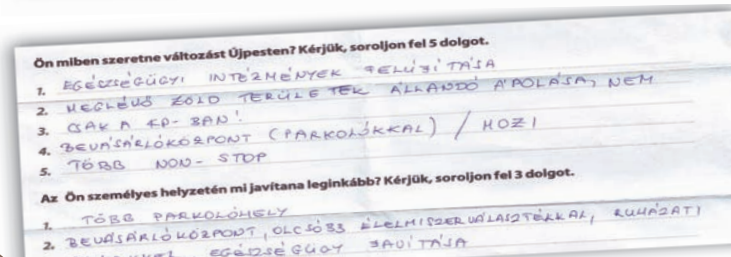 Ön miben szeretne változást Újpesten? Kérjük, soroljon fel 5 dolgot.
1. EGÉSZSÉGÜGYI INTÉZMÉNYEK FELÚJÍTÁSA
2. MEGLÉVŐ ZÖLD TERÜLETEK ÁLLANDÓ ÁPOLÁSA, NEM
3. CSAK A KP-BAN!
4. BEVÁSÁRLÓKÖZPONT (PARKOLÓKKAL) / MOZI
5. TÖBB NON-STOP
Az Ön személyes helyzetén mi javítana leginkább? Kérjük, soroljon fel 3 dolgot.
1. TÖBB PARKOLÓHELY
2. BEVÁSÁRLÓKÖZPONT, OLCSÓBB ÉLELMISZERVÁLASZTÉKKAL, RUHÁZATI
EGÉSZSÉGÜGY JAVÍTÁSA